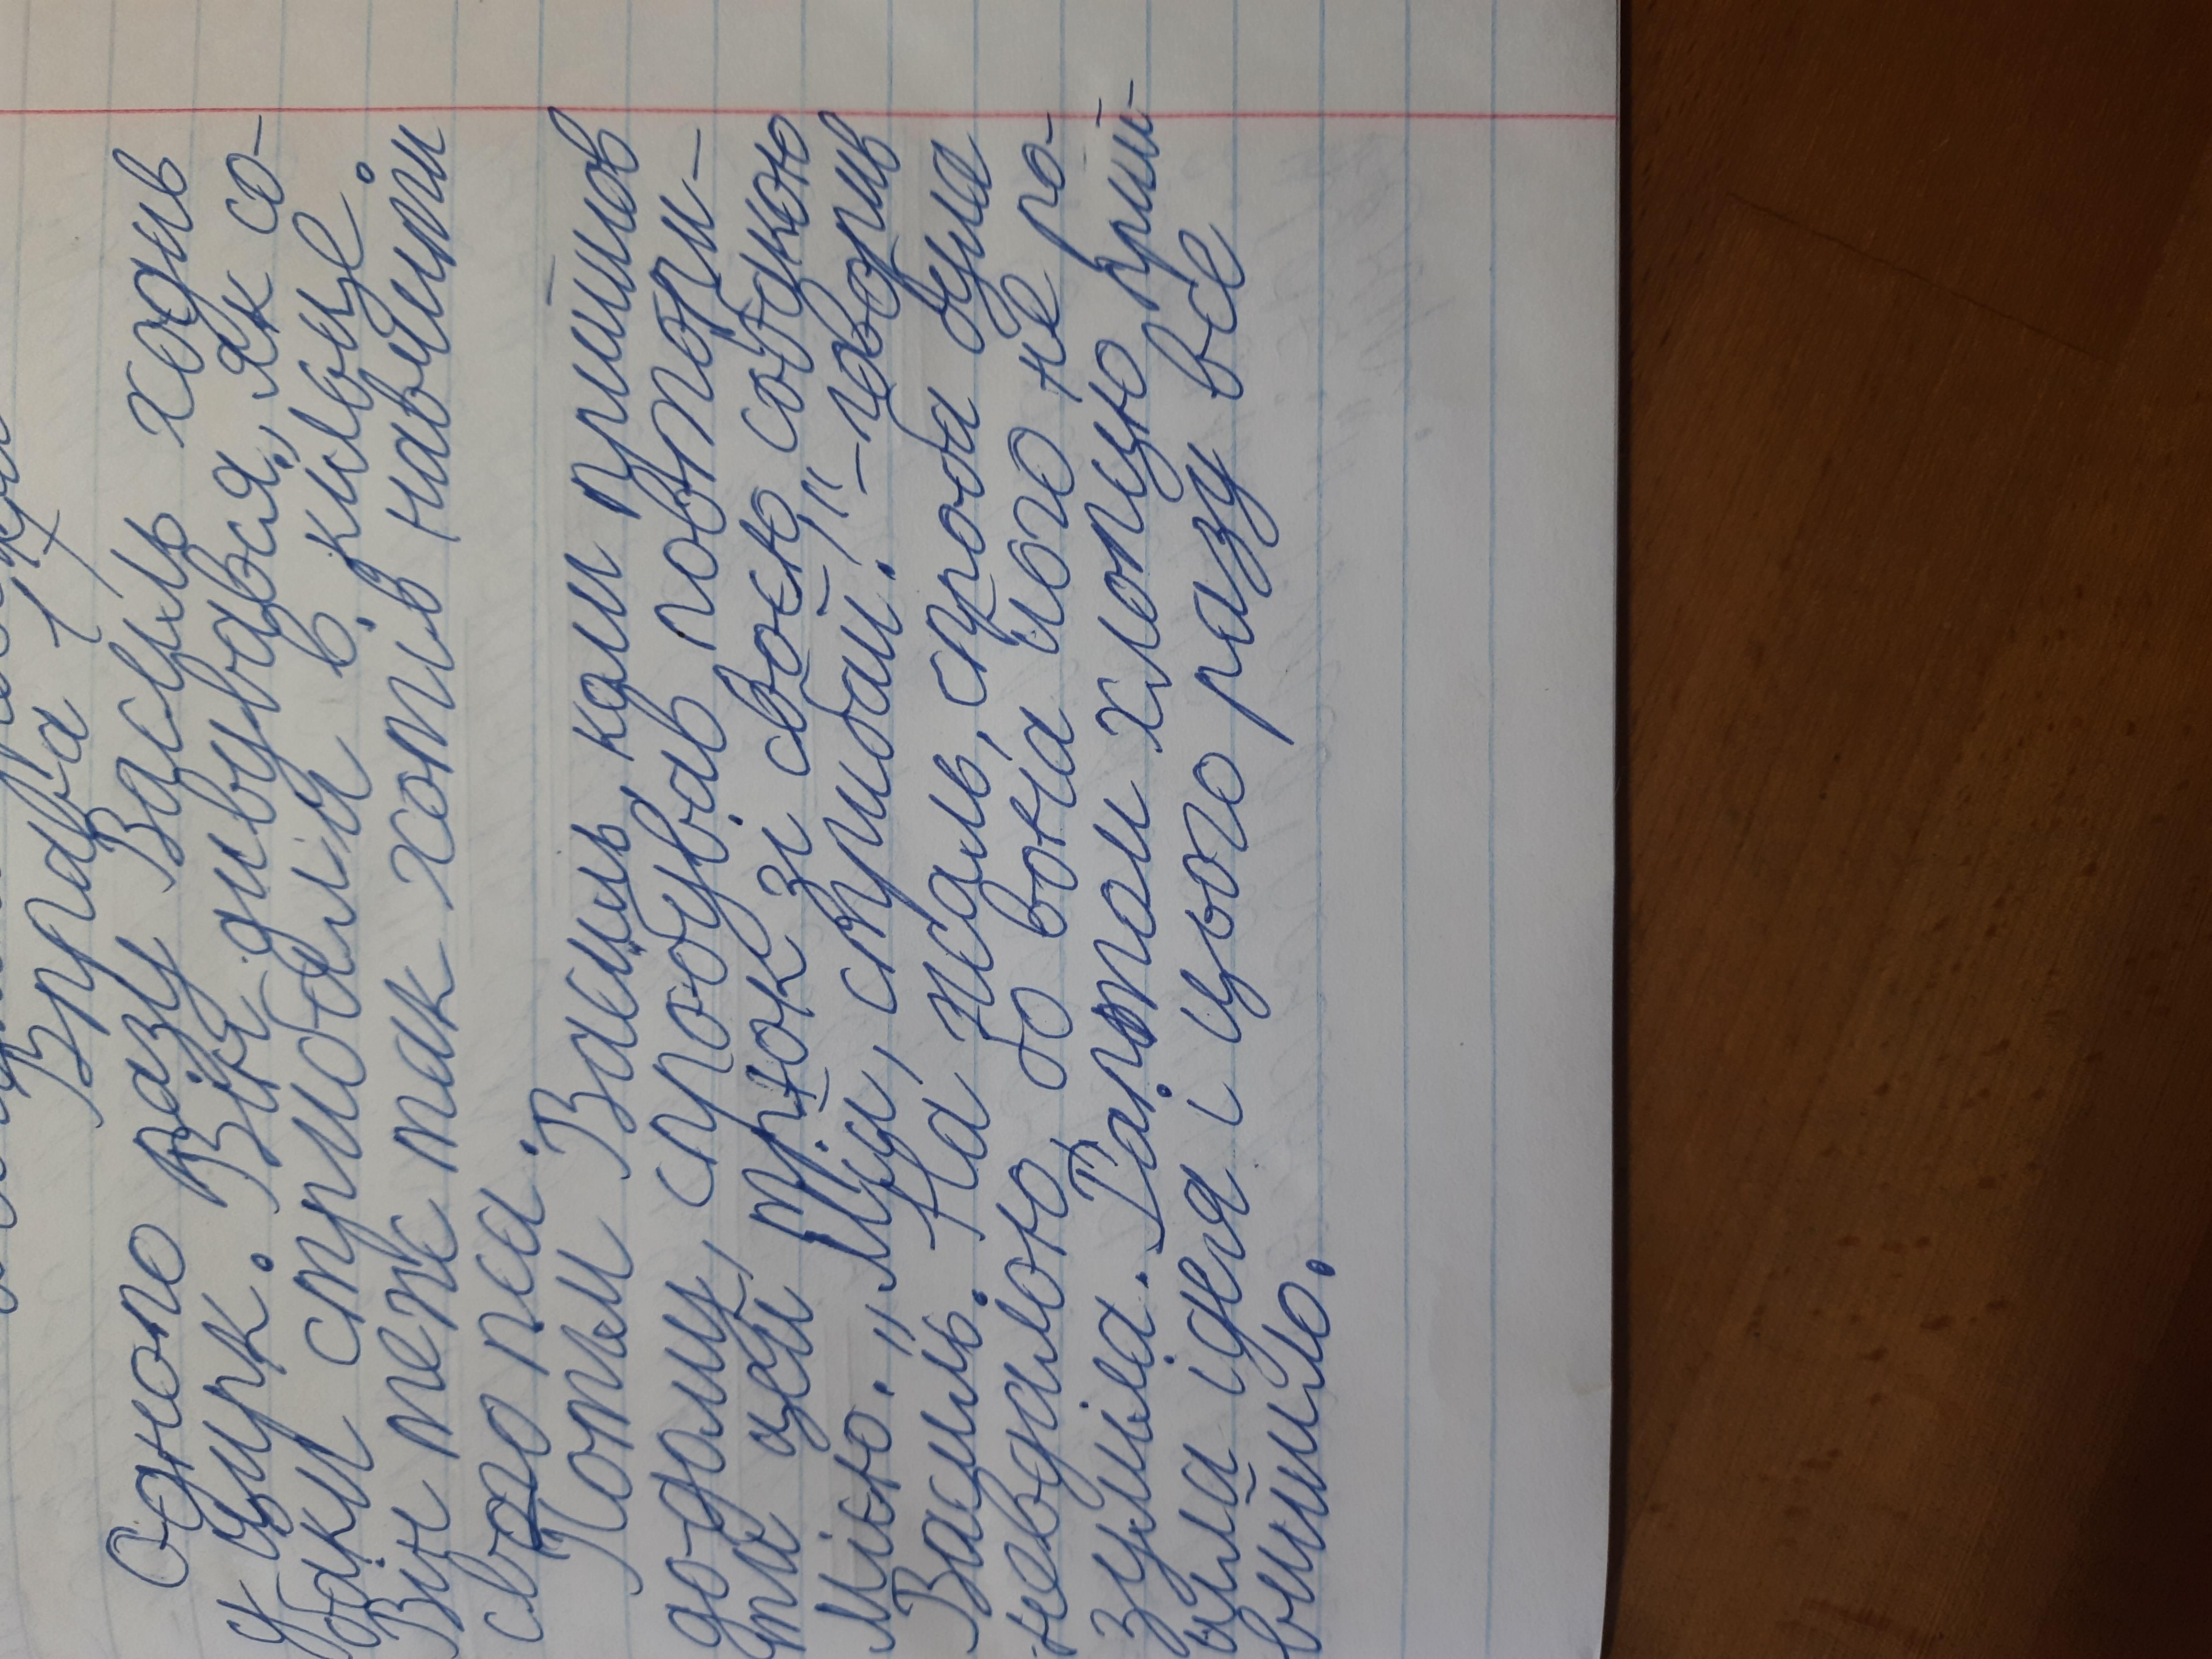 Вправа 1
Одного разу Василь ходив
у цирк. Він дивувався, як со-
баки стрибали в кільце.
Він теж так хотів навчити
свого пса.
Потім Василь, коли прийшов
додому, спробував повтори-
ти цей трюк зі своєю собакою
Мією. "Міи, стрибай!" - говорив
Василь. На жаль, спроба була
невдалою, бо вона його не ро-
зуміла. Раптом хлопцю прий-
шла ідея і цього разу все
вийшло.